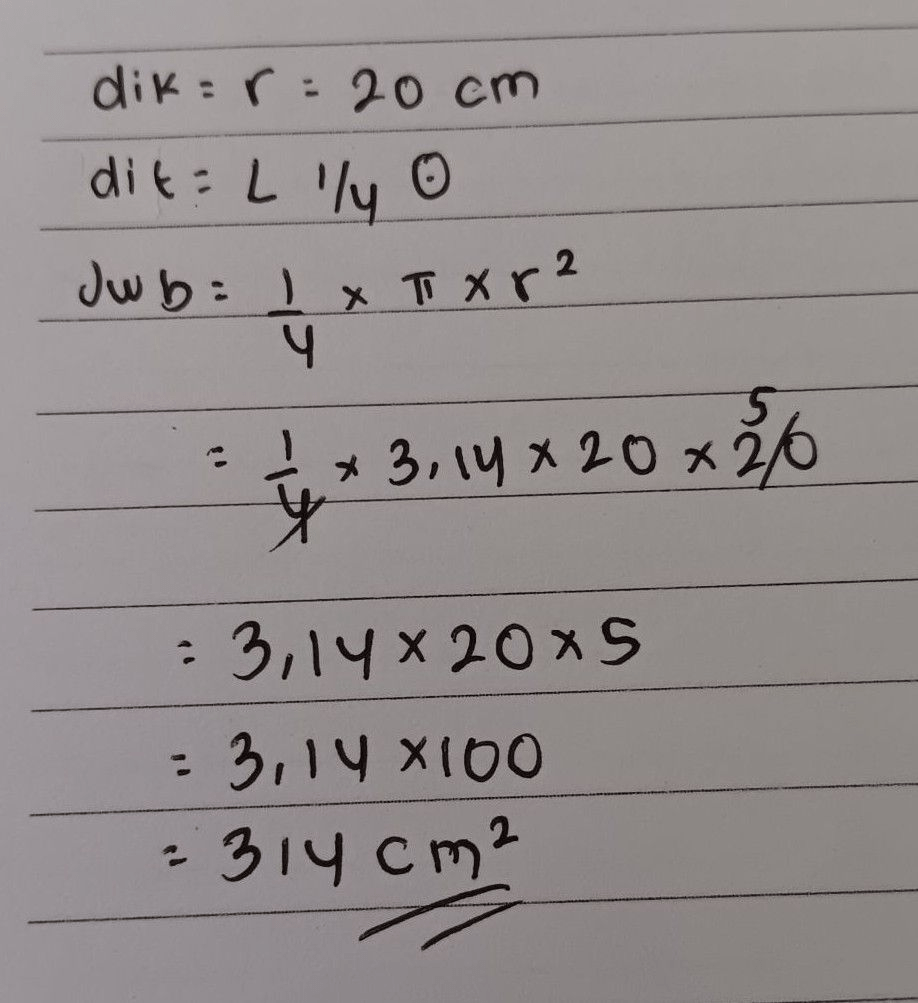 dik = r = 20 cm
dit = L 1/4 ⊙
Jwb = 1/4 × π × r²
= 1/4 × 3,14 × 20 × 20 5
= 3,14 × 20 × 5
= 3,14 × 100
= 314 cm²